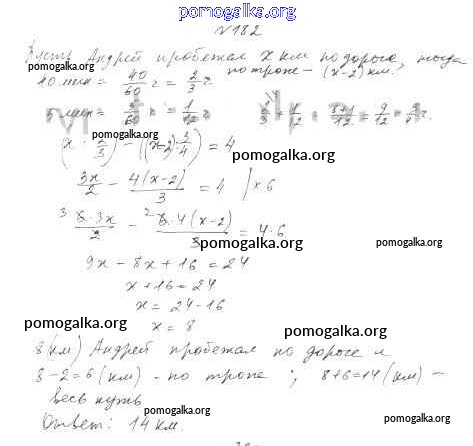 pomogalka.org
№ 182
Пусть Андрей пробежал x км по дороге, тогда
pomogalka.org по тропе – (x-2) км.
40 мин = 40/60 ч = 2/3 ч
5 мин = 5/60 ч = 1/12 ч 2/3 + 1/12 = 8+1/12 = 9/12 = 3/4 ч.
pomogalka.org
(x : 2/3) - ((x-2) : 3/4) = 4
pomogalka.org
3x/2 - 4(x-2)/3 = 4 | × 6
pomogalka.org
3 6·3x/2 - 2 6·4(x-2)/3 = 4·6
pomogalka.org pomogalka.org
9x - 8x + 16 = 24
x + 16 = 24
x = 24 - 16
pomogalka.org x = 8 pomogalka.org
8(км) Андрей пробежал по дороге и
8 - 2 = 6 (км) - по тропе ; 8+6=14 (км) –
весь путь
pomogalka.org pomogalka.org
Ответ: 14 км.